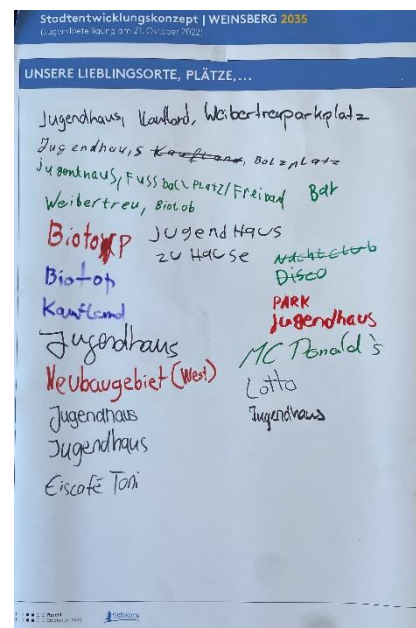 Stadtentwicklungskonzept | WEINSBERG 2035
(Jugendbeteiligung am 21. Oktober 2022)
UNSERE LIEBLINGSORTE, PLÄTZE,...
Jugendhaus, Kaufland, Weibertreuparkplatz
Jugendhaus Kaufland, Bolzplatz
Jugenthaus, Fussball Platz/Freibad
Bar
Weibertreu, Biotob
Biotop
Jugend Haus
zu Hause
Nachtclub
Disco
Biotop
PARK
Kaufland
Jugendhaus
Jugendhaus
MC Donald's
Neubaugebiet (West)
Lotto
Jugendhaus
Jugendhaus
Jugendhaus
Eiscafé Toni